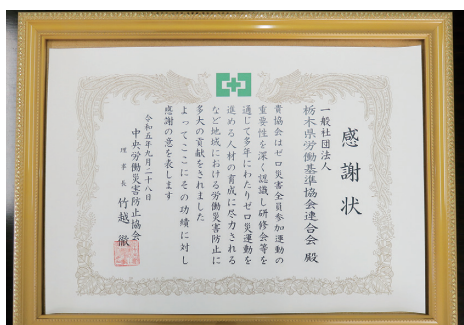 感謝状
一般社団法人
栃木県労働基準協会連合会 殿
貴協会はゼロ災害全員参加運動の
重要性を深く認識し研修会等を
通じて多年にわたりゼロ災運動を
進める人材の育成に尽力される
など地域における労働災害防止に
多大の貢献をされました
よってここにその功績に対し
感謝の意を表します
令和五年九月二十八日
中央労働災害防止協会
理事長 竹越 徹